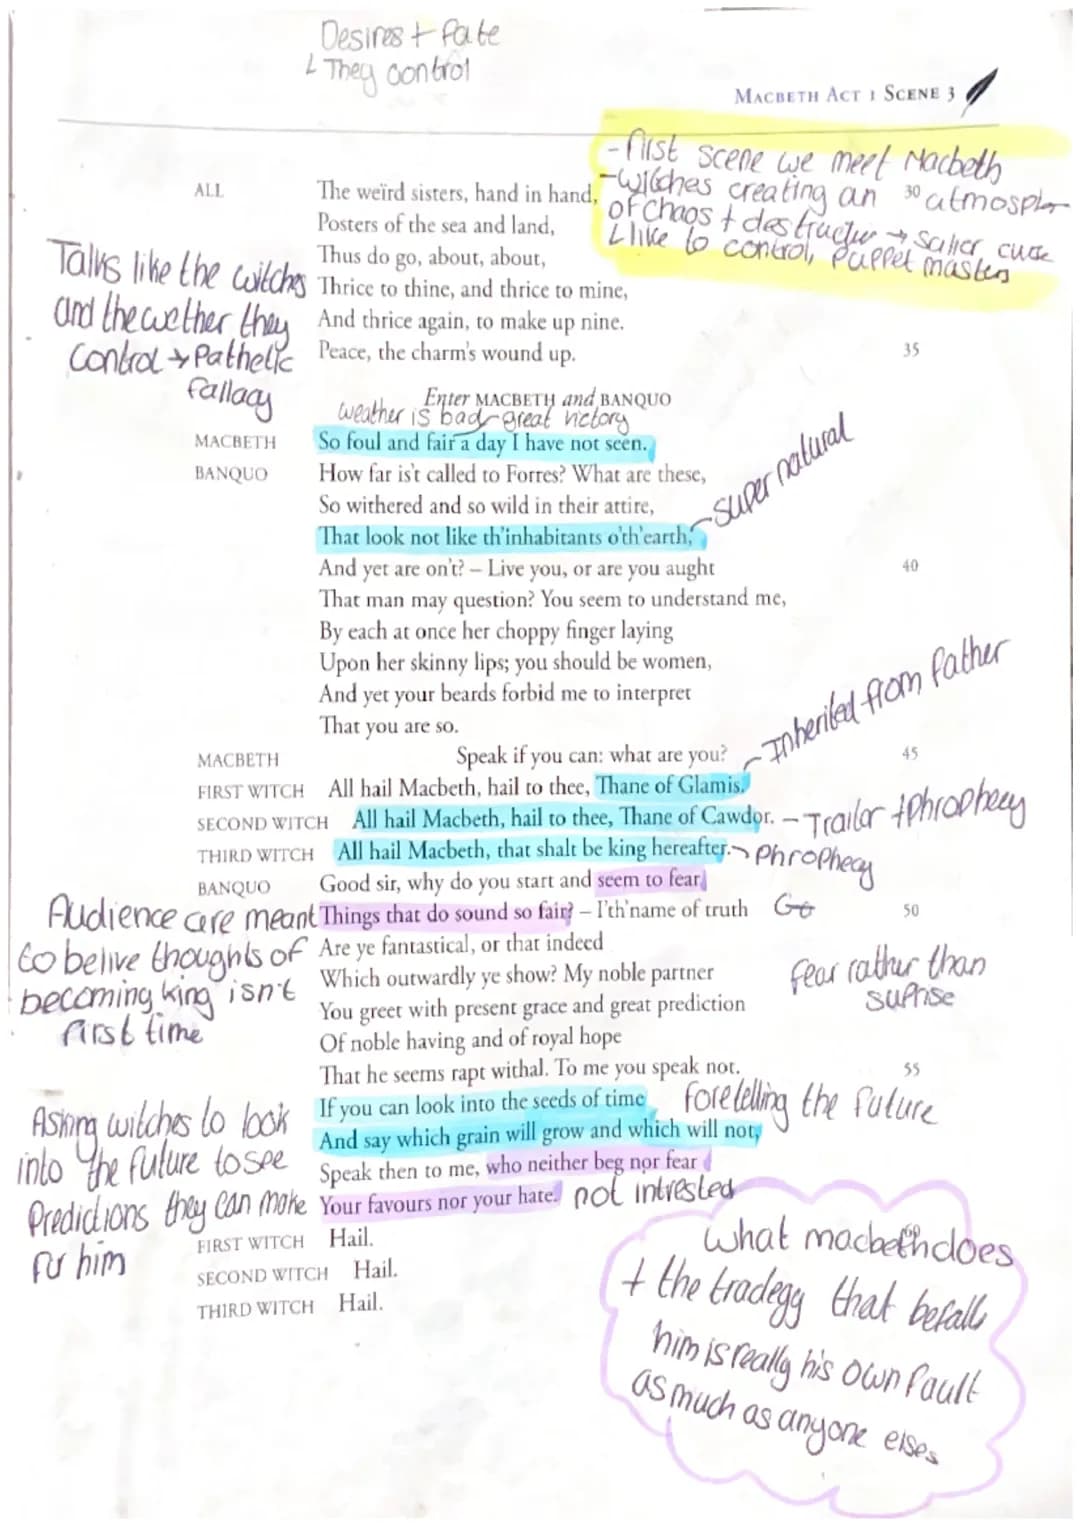 Desires + fate
↳ They control
MACBETH ACT 1 SCENE 3
- first scene we meet Macbeth
- witches creating an atmosphere
of chaos + destruction → sailor curse
↳ like to control, puppet masters
ALL The weïrd sisters, hand in hand, 30
Posters of the sea and land,
Thus do go, about, about,
Thrice to thine, and thrice to mine,
And thrice again, to make up nine.
Peace, the charm's wound up. 35
Talks like the witches
and the wether they
control → Pathetic
fallacy
Enter MACBETH and BANQUO
weather is bad - great victory
MACBETH So foul and fair a day I have not seen.
BANQUO How far is't called to Forres? What are these,
So withered and so wild in their attire,
That look not like th'inhabitants o'th'earth,
- super natural
And yet are on't? – Live you, or are you aught 40
That man may question? You seem to understand me,
By each at once her choppy finger laying
Upon her skinny lips; you should be women,
And yet your beards forbid me to interpret
That you are so.
MACBETH Speak if you can: what are you? 45
FIRST WITCH All hail Macbeth, hail to thee, Thane of Glamis.
- Inherited from father
SECOND WITCH All hail Macbeth, hail to thee, Thane of Cawdor. - Traitor + Phrophecy
THIRD WITCH All hail Macbeth, that shalt be king hereafter. - Phrophecy
BANQUO Good sir, why do you start and seem to fear
Things that do sound so fair? – I'th'name of truth 50
Are ye fantastical, or that indeed
Which outwardly ye show? My noble partner
You greet with present grace and great prediction
Of noble having and of royal hope
That he seems rapt withal. To me you speak not. 55
Audience are meant
to belive thoughts of
becoming king isn't
first time
fear rather than
suprise
If you can look into the seeds of time
And say which grain will grow and which will not,
foretelling the future
Speak then to me, who neither beg nor fear
Your favours nor your hate. not intrested
Asking witches to look
into the future to see
Predictions they can make
for him
FIRST WITCH Hail. 60
SECOND WITCH Hail.
THIRD WITCH Hail.
what macbeth does
+ the tradegy that befalls
him is really his own fault
as much as anyone elses